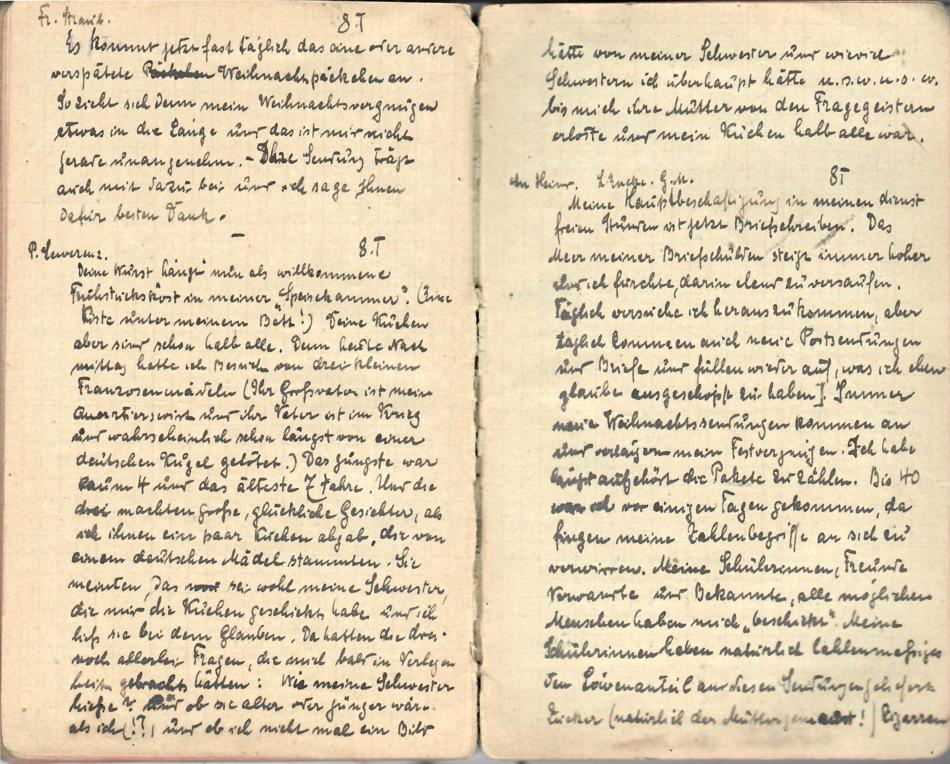 Fr. Straub. 8.I
Es kommt jetzt fast täglich das eine oder andere
verspätete Päckchen Weihnachtspäckchen an.
So zieht sich denn mein Weihnachtsvergnügen
etwas in die Länge und das ist mir nicht
gerade unangenehm. – Ihre Sendung trägt
auch mit dazu bei und ich sage Ihnen
dafür besten Dank.
–
P. Lewerenz. 8.I
Deine Wurst hängt nun als willkommene
Frühstückskost in meiner „Speisekammer". (Eine
Kiste unter meinem Bett!) Deine Kuchen
aber sind schon halb alle. Denn heute Nach
mittag hatte ich Besuch von drei kleinen
Franzosenmädeln (Ihr Großvater ist mein
Quartierswirt und ihr Vater ist im Krieg
und wahrscheinlich schon längst von einer
deutschen Kugel getötet.) Das jüngste war
kaum 4 und das älteste 7 Jahre. Und die
drei machten große, glückliche Gesichter, als
ich ihnen ein paar Kuchen abgab, die von
einem deutschen Mädel stammten. Sie
meinten, das sei wohl meine Schwester,
die mir die Kuchen geschickt habe und ich
ließ sie bei dem Glauben. Da hatten die drei
noch allerlei Fragen, die mich bald in Verlegen
heit gebracht hätten: Wie meine Schwester
hieße? Und ob sie älter oder jünger wäre
als ich (!?) und ob ich nicht mal ein Bild
hätte von meiner Schwester und wieviel
Schwestern ich überhaupt hätte u.s.w. u.s.w.
bis mich ihre Mutter von den Fragegeistern
erlöste und mein Kuchen halb alle war.
An Heinr. G.M. 8I
Meine Hauptbeschäftigung in meinen dienst
freien Stunden ist jetzt Briefschreiben. Das
Meer meiner Briefschulden steigt immer höher
und ich fürchte, darin elend zu versaufen.
Täglich versuche ich herauszukommen, aber
täglich kommen auch neue Postsendungen
und Briefe und füllen wieder auf, was ich eben
glaube ausgeschöpft zu haben]. Immer
neue Weihnachtssendungen kommen an
und verlängern mein Festvergnügen. Ich habe
längst aufgehört die Pakete zu zählen. Bis 40
war ich vor einigen Tagen gekommen, da
fingen meine Zahlenbegriffe an sich zu
verwirren. Meine Schülerinnen, Freunde
Verwandte und Bekannte, alle möglichen
Menschen haben mich „beschickt". Meine
Schülerinnen haben natürlich zahlenmäßig
den Löwenanteil an diesen Sendungen geliefert.
Zucker (natürlich der Mutter gemaust!) Zigarren